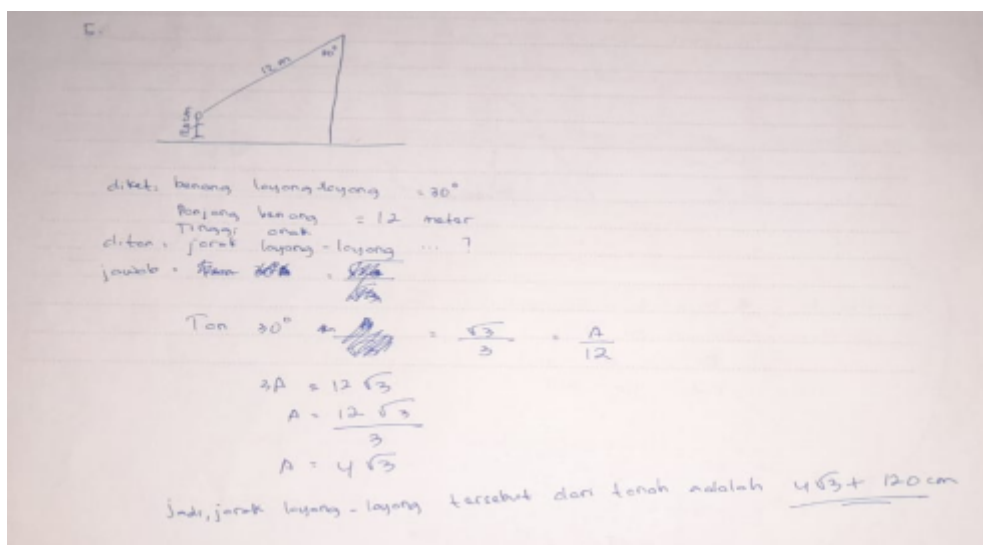 5.
12 m
30°
120 cm
diket. benang layang-layang = 30°
Panjang benang = 12 meter
Tinggi anak
ditan. jarak layang-layang ... ?
jawab =
Tan 30° = √3/3 = A/12
3A = 12 √3
A = 12 √3 / 3
A = 4 √3
Jadi, jarak layang-layang tersebut dari tanah adalah 4√3 + 120 cm